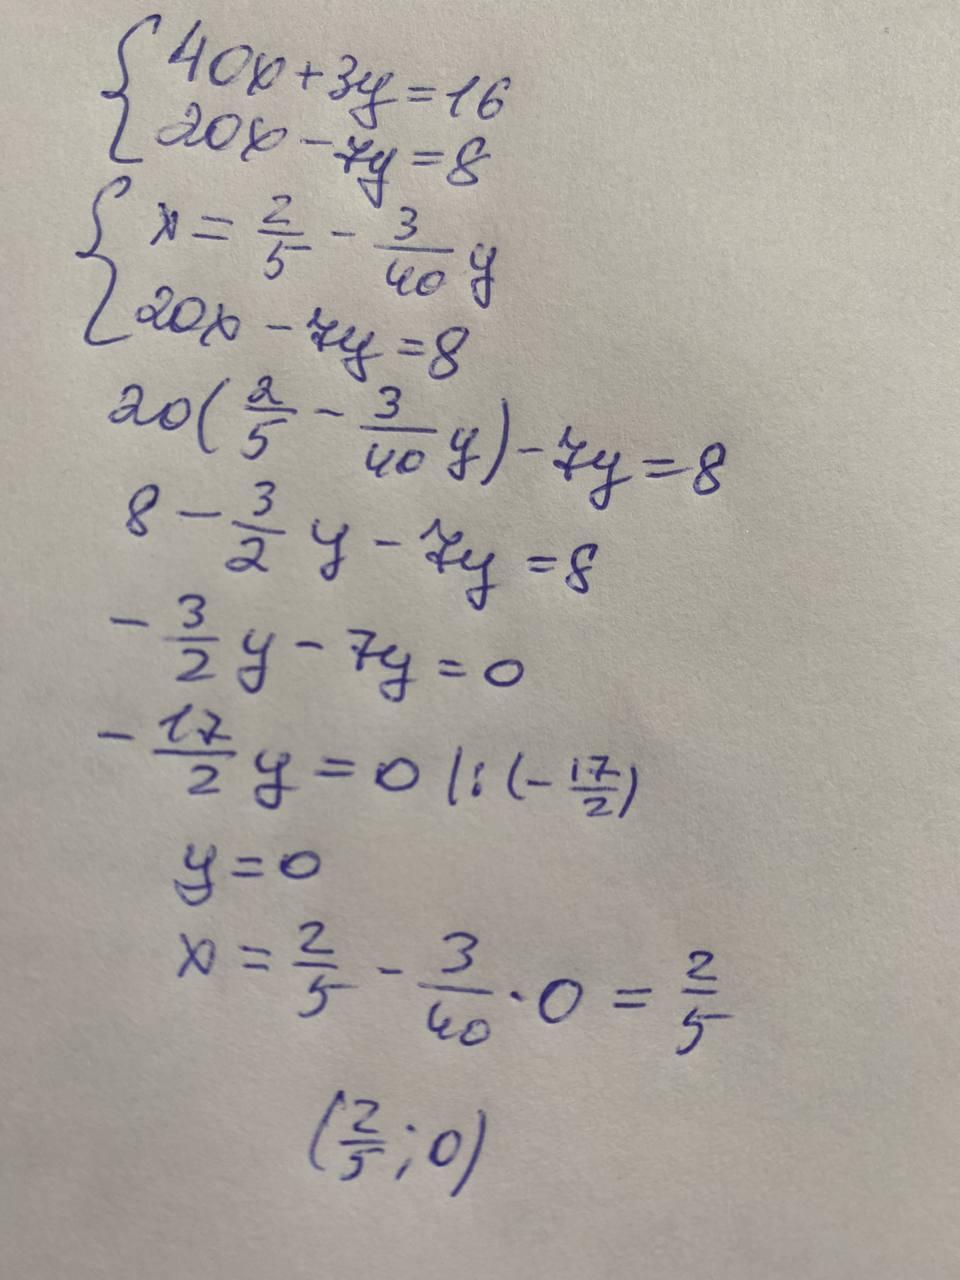 { 40x + 3y = 16
20x - 7y = 8
{ x = 2/5 - 3/40 y
20x - 7y = 8
20(2/5 - 3/40 y) - 7y = 8
8 - 3/2 y - 7y = 8
- 3/2 y - 7y = 0
- 17/2 y = 0 |: (- 17/2)
y = 0
x = 2/5 - 3/40 · 0 = 2/5
(2/5; 0)